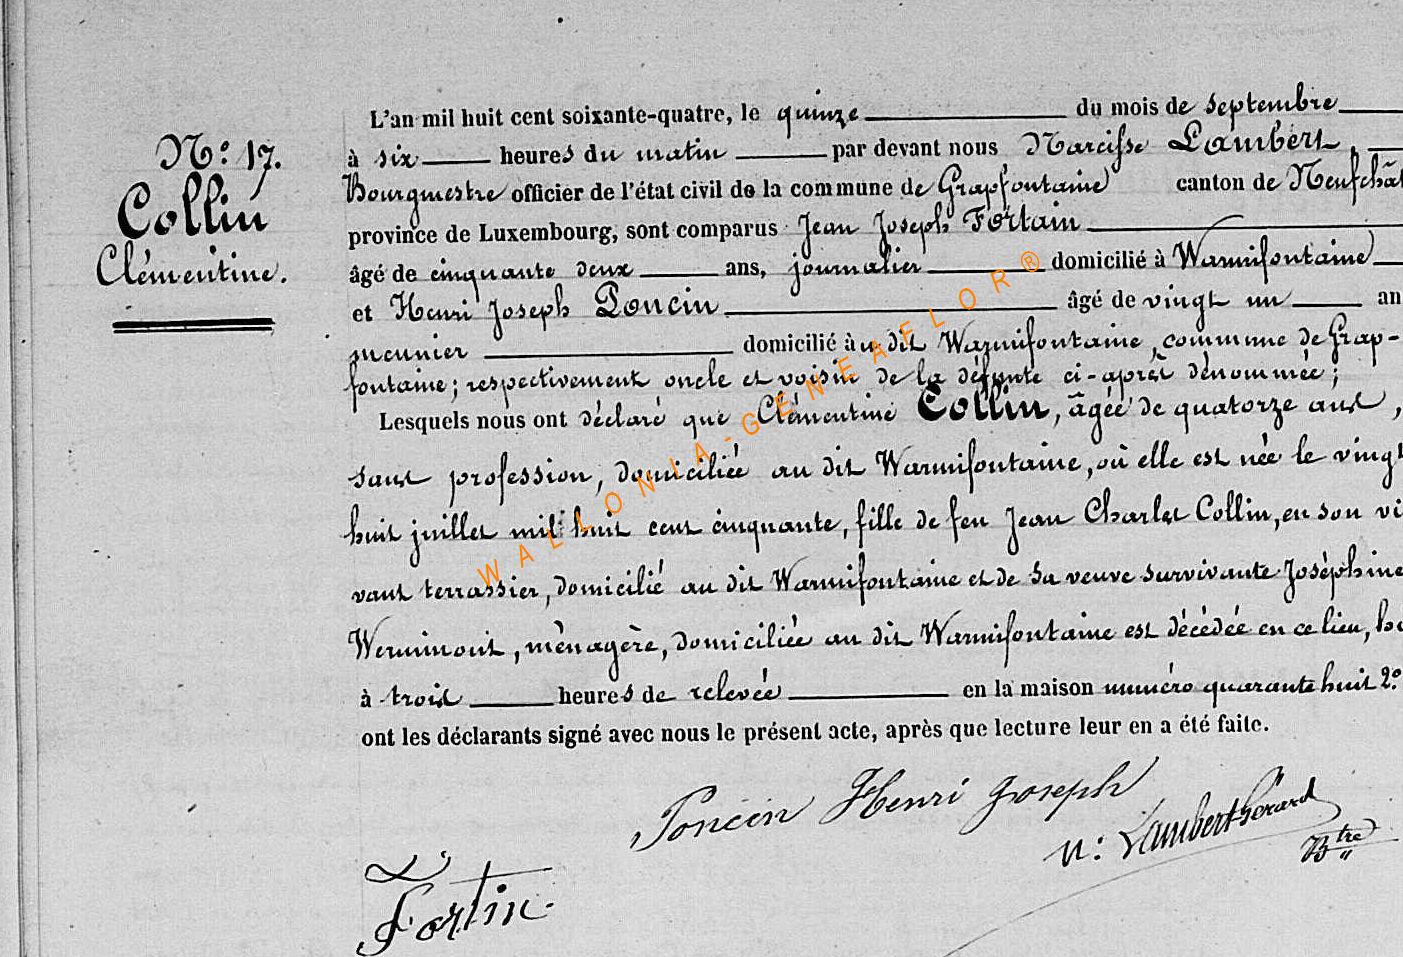 N.o 17.
Collin
Clémentine.
L'an mil huit cent soixante-quatre, le quinze du mois de septembre
à six heures du matin par devant nous Narcisse Lambert,
Bourgmestre officier de l'état civil de la commune de Grapfontaine canton de Neufchât
province de Luxembourg, sont comparus Jean Joseph Fortain
âgé de cinquante deux ans, journalier domicilié à Warmifontaine
et Henri Joseph Poncin âgé de vingt un an
meunier domicilié au dit Warmifontaine, commune de Grap-
fontaine; respectivement oncle et voisin de la défunte ci-après dénommée;
Lesquels nous ont déclaré que Clémentine Collin, âgée de quatorze ans,
sans profession, domiciliée au dit Warmifontaine, où elle est née le vingt
huit juillet mil huit cent cinquante, fille de feu Jean Charles Collin, en son vi
vant terrassier, domicilié au dit Warmifontaine et de sa veuve survivante Joséphine
Werimont, ménagère, domiciliée au dit Warmifontaine est décédée en ce lieu,
à trois heures de relevée en la maison numéro quarante huit 2.o
ont les déclarants signé avec nous le présent acte, après que lecture leur en a été faite.
Poncin Henri Joseph
N: Lambert Gérard
Btre
Fortin
WALLONIA-GENEAFLOR®